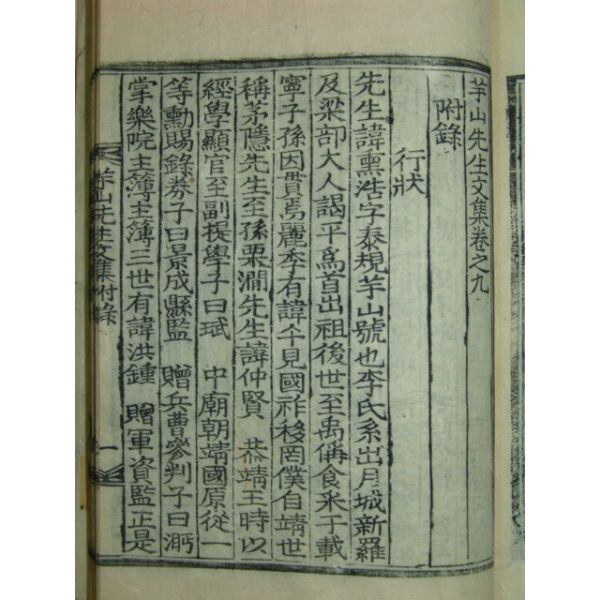 芋山先生文集卷之九
附錄
行狀
先生諱熏浩字泰規芋山號也李氏系出月城新羅
及梁部大人謁平爲首出祖後世至禹偁食采于載
寧子孫因貫焉麗季有諱午見國祚移罔僕自靖世
稱茅隱先生至孫栗澗先生諱仲賢 恭靖王時以
經學顯官至副提學子曰珷 中廟朝靖國原從一
等勳賜錄券子曰景成縣監 贈兵曹參判子曰沔
掌樂院主簿主簿三世有諱洪鍾 贈軍資監正是
芋山先生文集附錄
一